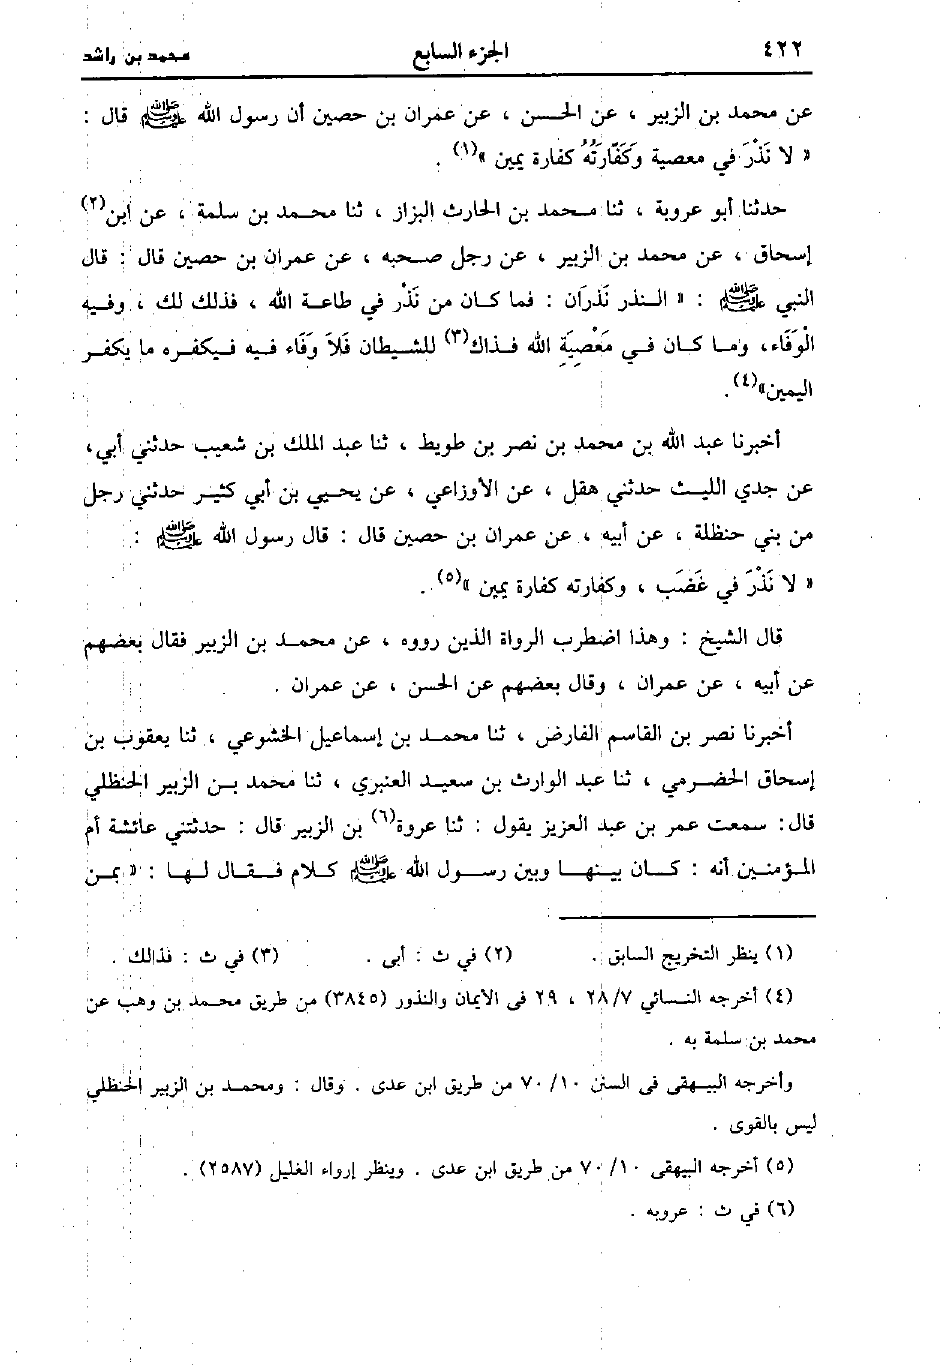 ٤٢٢ الجزء السابع محمد بن راشد
عن محمد بن الزبير ، عن الحسن ، عن عمران بن حصين أن رسول الله ﷺ قال :
« لا نَذْرَ في معصية وكَفَّارَتُهُ كفارة يمين »(١) .
حدثنا أبو عروبة ، ثنا محمد بن الحارث البزاز ، ثنا محمد بن سلمة ، عن ابن(٢)
إسحاق ، عن محمد بن الزبير ، عن رجل صحبه ، عن عمران بن حصين قال : قال
النبي ﷺ : « النذر نَذْرَان : فما كان من نَذْر في طاعة الله ، فذلك لك ، وفيه
الْوَفَاء، وما كان في مَعْصِيَةِ الله فذاك(٣) للشيطان فَلاَ وَفَاء فيه فيكفره ما يكفر
اليمين»(٤).
أخبرنا عبد الله بن محمد بن نصر بن طويط ، ثنا عبد الملك بن شعيب حدثني أبي،
عن جدي الليث حدثني هقل ، عن الأوزاعي ، عن يحيي بن أبي كثير حدثني رجل
من بني حنظلة ، عن أبيه ، عن عمران بن حصين قال : قال رسول الله ﷺ :
« لا نَذْرَ في غَضَب ، وكفارته كفارة يمين »(٥) .
قال الشيخ : وهذا اضطرب الرواة الذين رووه ، عن محمد بن الزبير فقال بعضهم
عن أبيه ، عن عمران ، وقال بعضهم عن الحسن ، عن عمران .
أخبرنا نصر بن القاسم الفارض ، ثنا محمد بن إسماعيل الخشوعي ، ثنا يعقوب بن
إسحاق الحضرمي ، ثنا عبد الوارث بن سعيد العنبري ، ثنا محمد بن الزبير الحنظلي
قال: سمعت عمر بن عبد العزيز يقول : ثنا عروة(٦) بن الزبير قال : حدثتني عائشة أم
المؤمنين أنه : كان بينها وبين رسول الله ﷺ كلام فقال لها : « بمن
(١) ينظر التخريج السابق . (٢) في ث : أبى . (٣) في ث : فذالك .
(٤) أخرجه النسائي ٢٨/٧ ، ٢٩ فى الأيمان والنذور (٣٨٤٥) من طريق محمد بن وهب عن
محمد بن سلمة به .
وأخرجه البيهقى فى السنن ٧٠/١٠ من طريق ابن عدى . وقال : ومحمد بن الزبير الحنظلي
ليس بالقوى .
(٥) أخرجه البيهقى ٧٠/١٠ من طريق ابن عدى . وينظر إرواء الغليل (٢٥٨٧) .
(٦) في ث : عروبه .